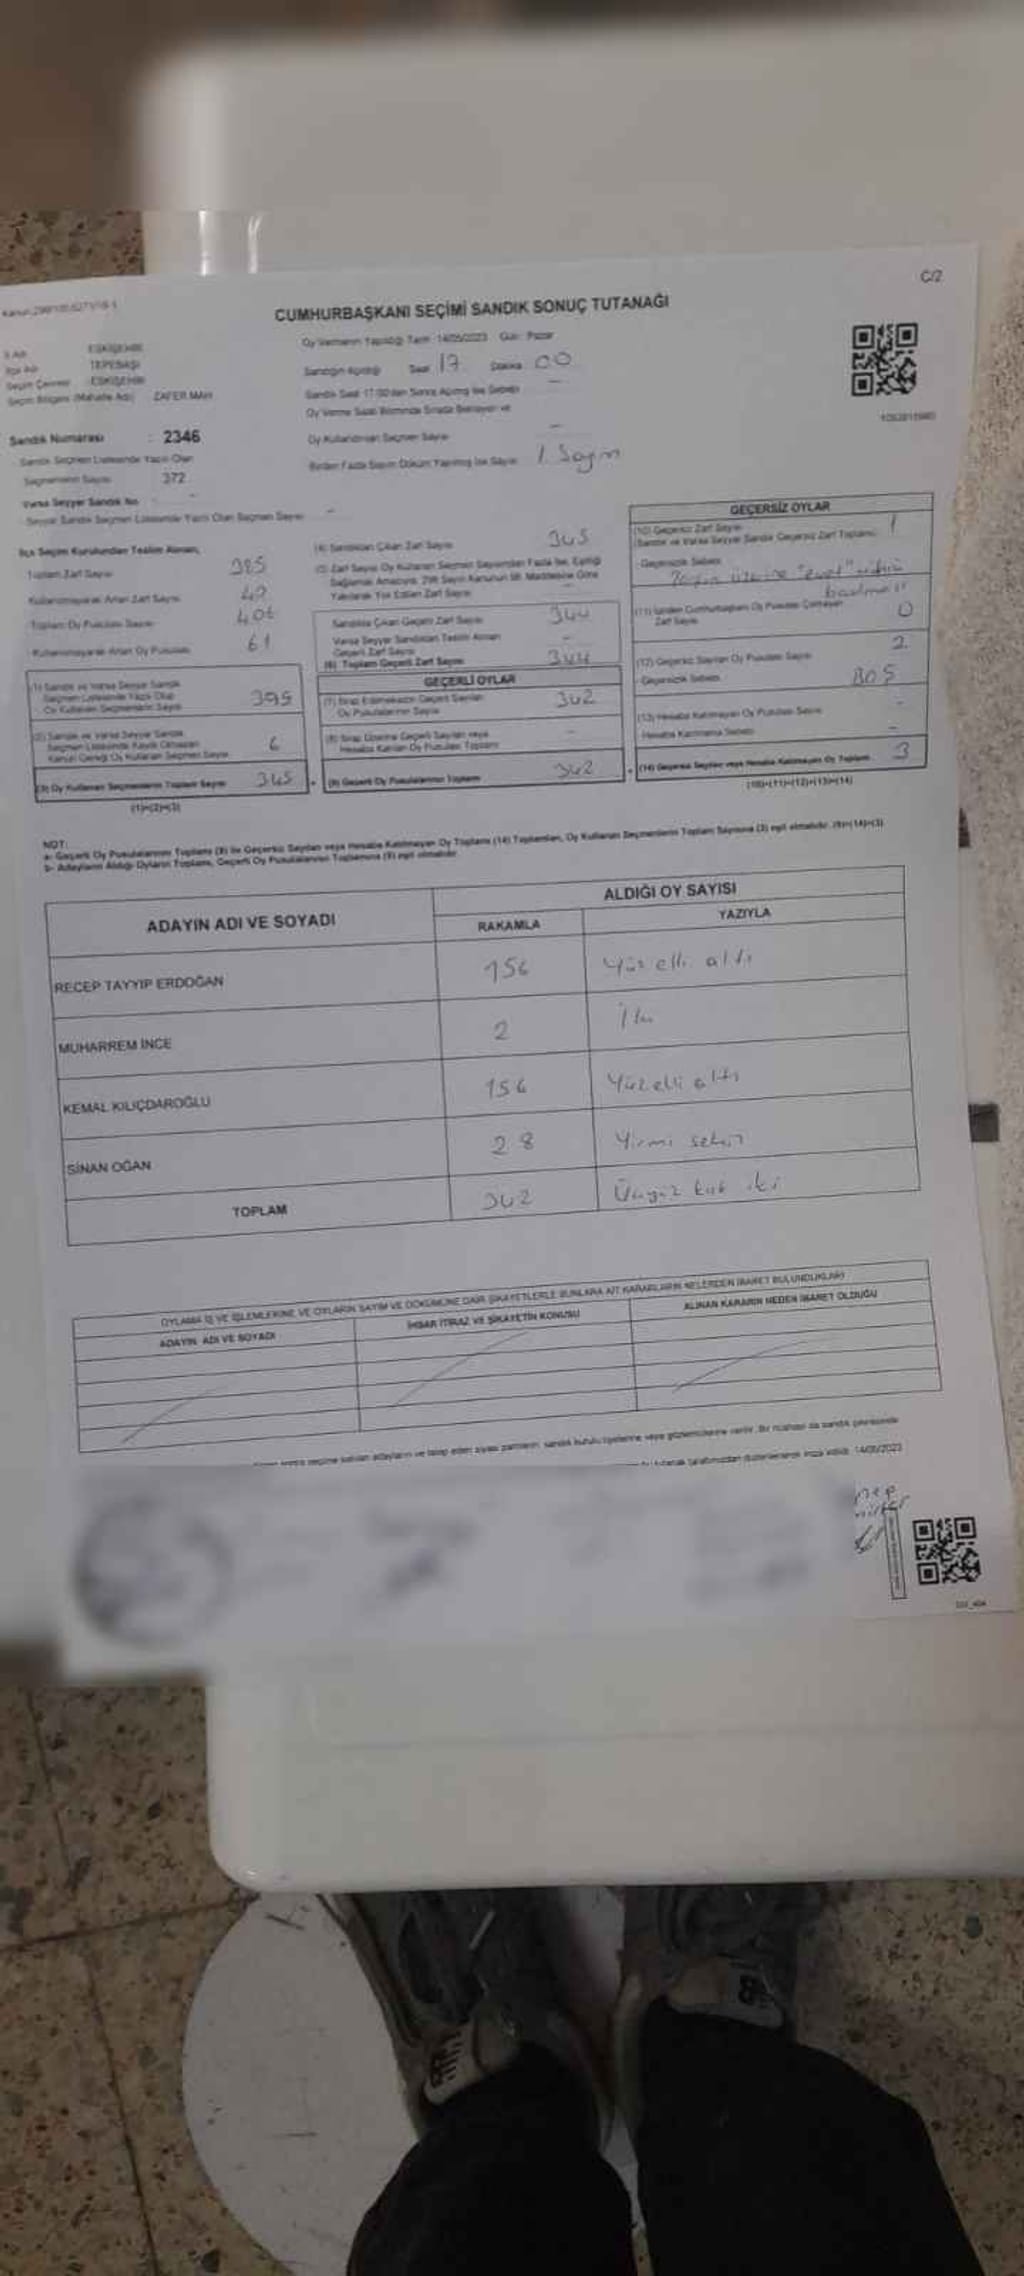 C/2
CUMHURBAŞKANI SEÇİMİ SANDIK SONUÇ TUTANAĞI
İl Adı ESKİŞEHİR
İlçe Adı TEPEBAŞI
Seçim Çevresi ESKİŞEHİR
Seçim Bölgesi (Mahalle Adı) ZAFER MAH.
Sandık Numarası : 2346
Sandık Seçmen Listesinde Yazılı Olan
Seçmenlerin Sayısı 372
Varsa Seyyar Sandık No -
Seyyar Sandık Seçmen Listesinde Yazılı Olan Seçmen Sayısı -
Oy Vermenin Yapıldığı Tarih: 14/05/2023 Gün: Pazar
Sandığın Açıldığı Saat 17 Dakika 00
Sandık Saat 17:00'dan Sonra Açılmış İse Sebebi -
Oy Verme Saati Bitiminde Sırada Bekleyen ve
Oy Kullandırılan Seçmen Sayısı -
Birden Fazla Sayım Döküm Yapılmış İse Sayısı 1 Sayım
İlçe Seçim Kurulundan Teslim Alınan,
Toplam Zarf Sayısı 385
Kullanılmayarak Artan Zarf Sayısı
Toplam Oy Pusulası Sayısı 406
Kullanılmayarak Artan Oy Pusulası 61
(1) Sandık ve Varsa Seyyar Sandık
Seçmen Listesinde Yazılı Olup
Oy Kullanan Seçmenlerin Sayısı
(2) Sandık ve Varsa Seyyar Sandık
Seçmen Listesinde Kayıtlı Olmayan
Kanun Gereği Oy Kullanan Seçmen Sayısı 6
(3) Oy Kullanan Seçmenlerin Toplam Sayısı 345
(1)+(2)=(3)
(4) Sandıktan Çıkan Zarf Sayısı 345
(5) Zarf Sayısı Oy Kullanan Seçmen Sayısından Fazla İse, Eşitliği
Sağlamak Amacıyla, 298 Sayılı Kanunun 98. Maddesine Göre
Yakılarak Yok Edilen Zarf Sayısı -
Sandıkta Çıkan Geçerli Zarf Sayısı 344
Varsa Seyyar Sandıktan Teslim Alınan
Geçerli Zarf Sayısı -
(6) Toplam Geçerli Zarf Sayısı 344
GEÇERLİ OYLAR
(7) İtiraz Edilmeksizin Geçerli Sayılan
Oy Pusulalarının Sayısı 342
(8) İtiraz Üzerine Geçerli Sayılan veya
Hesaba Katılan Oy Pusulası Toplamı -
(9) Geçerli Oy Pusulalarının Toplamı 342
GEÇERSİZ OYLAR
(10) Geçersiz Zarf Sayısı
(Sandık ve Varsa Seyyar Sandık Geçersiz Zarf Toplamı) 1
Geçersizlik Sebebi
Zarfın üzerine "evet" mührü
basılması
(11) İçinden Cumhurbaşkanı Oy Pusulası Çıkmayan
Zarf Sayısı 0
(12) Geçersiz Sayılan Oy Pusulası Sayısı 2
Geçersizlik Sebebi
(13) Hesaba Katılmayan Oy Pusulası Sayısı -
Hesaba Katılmama Sebebi -
(14) Geçersiz Sayılan veya Hesaba Katılmayan Oy Toplamı 3
(10)+(11)+(12)+(13)=(14)
NOT:
a- Geçerli Oy Pusulalarının Toplamı (9) ile Geçersiz Sayılan veya Hesaba Katılmayan Oy Toplamı (14) Toplamları, Oy Kullanan Seçmenlerin Toplam Sayısına (3) eşit olmalıdır. (9)+(14)=(3)
b- Adayların Aldığı Oyların Toplamı, Geçerli Oy Pusulalarının Toplamına (9) eşit olmalıdır.
ADAYIN ADI VE SOYADI
ALDIĞI OY SAYISI
RAKAMLA YAZIYLA
RECEP TAYYİP ERDOĞAN 156 Yüz elli altı
MUHARREM İNCE 2 İki
KEMAL KILIÇDAROĞLU 156 Yüzelli altı
SİNAN OĞAN 28 Yirmi sekiz
TOPLAM 342 Üçyüz kırk iki
OYLAMA İŞ VE İŞLEMLERİNE VE OYLARIN SAYIM VE DÖKÜMÜNE DAİR ŞİKAYETLERLE BUNLARA AİT KARARLARIN NELERDEN İBARET BULUNDUKLARI
ADAYIN ADI VE SOYADI
İHBAR İTİRAZ VE ŞİKAYETİN KONUSU
ALINAN KARARIN NEDEN İBARET OLDUĞU
seçime katılan adayların ve talep eden siyasi partilerin sandık kurulu üyelerine veya gözlemcilerine verilir. Bir nüshası da sandık çevresinde
tutanak tarafımızdan düzenlenerek imza edildi. 14/05/2023